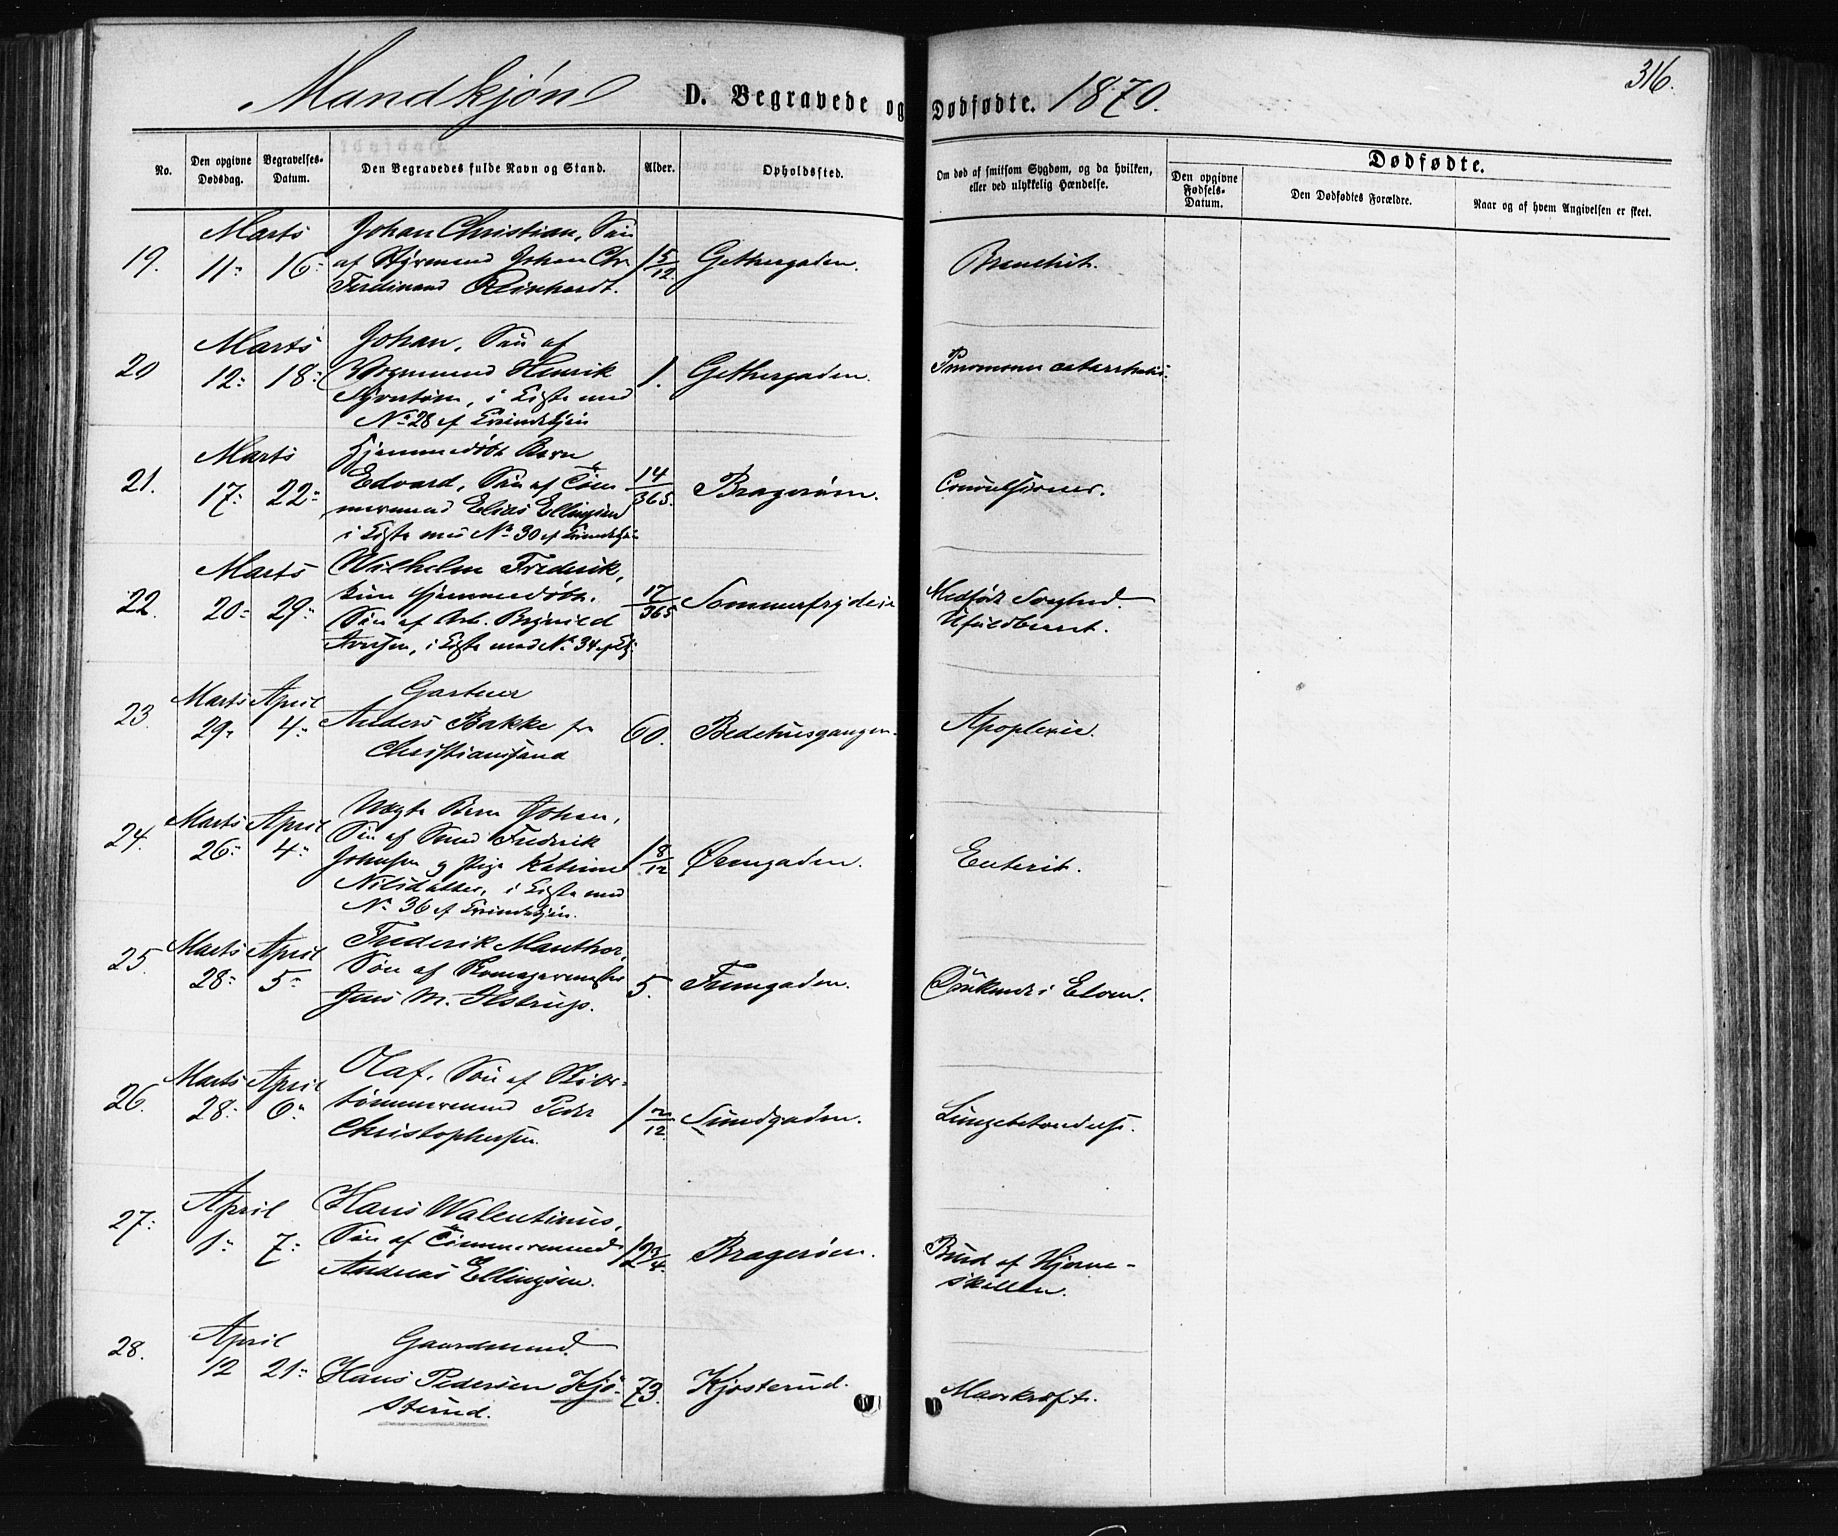 316.
Mandkjøn D. Begravede og Dødfødte. 1870.
No.
Den opgivne Dødsdag.
Begravelses-Datum.
Den Begravedes fulde Navn og Stand.
Alder.
Opholdssted.
Om død af smitsom Sygdom, og da hvilken,
eller ved ulykkelig Hændelse.
Dødfødte.
Den opgivne Fødsels-Datum.
Den Dødfødtes Forældre.
Naar og af hvem Angivelsen er skeet.
19. Marts 11 16
Johan Christian, Søn
af Styrmand Johan Chr.
Ferdinand Reinhardt.
1 5/12 Gethergaden. Bronchit.
20 Marts 12 18
Johan, Søn af
Henrik
i Kiste med
No 28 af Kvindekjøn
1. Gethergaden.
21. Marts 17 22
Hjemmedøbt Barn
Edvard, Søn af Tøm-
mermand Elias Ellingsen
i Kiste med No 30 af Kvindekjøn
14/365 Bragerøen. Convulsioner.
22. Marts 20 29
Wilhelm Frederik,
kun hjemmedøbt.
Søn af Arb. Brynild
Iversen, i Kiste med No 34
17/365 Sommerfryden Medfødt Svaghed.
Ufuldbaaret.
23. Marts 29 April 4
Gartner
Anders Bakke fra
Christianssand
60. Bedehusgangen. Apoplexie.
24. Marts 26 April 4
Uægte Barn Johan,
Søn af Frederik
Johnsen og Pige Katrine
Nilsdatter, i Kiste med
No 36 af Kvindekjøn.
1 8/12 Ørengaden. Enterit.
25. Marts 28 April 5
Frederik Manthor,
Søn af Skomagermester
Jens M. Alstrup.
5. Tverrgaden. Druknet i Elven.
26. Marts 28 April 6
Olaf, Søn af Skibs-
tømmermand Peder
Christophersen.
1 Sundgaden. Lungebetændelse.
27. April 1 7
Hans Walentinus,
Søn af Tømmermand
Andreas Ellingsen.
12 3/4 Bragerøen. Brud af Hjerne-
skallen.
28. April 12 21
Gaardmand
Hans Pedersen Kjø-
sterud.
73. Kjøsterud. Mavekræft.